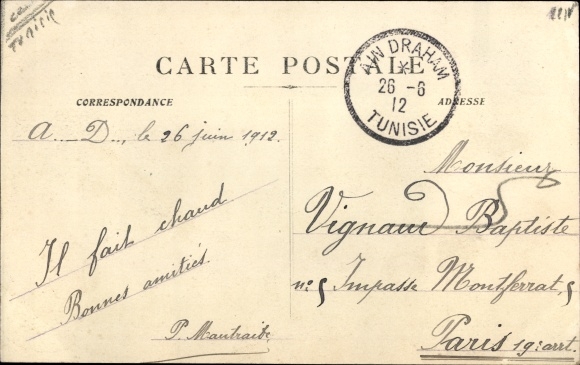 CARTE POSTALE
AIN DRAHAM
26 - 6
12
TUNISIE
CORRESPONDANCE
ADRESSE
A. D., le 26 juin 1912.
Il fait chaud
Bonnes amitiés.
Monsieur
Vignaud Baptiste
n: 5 Impasse Montferrat, 5
Paris 19: arrt.